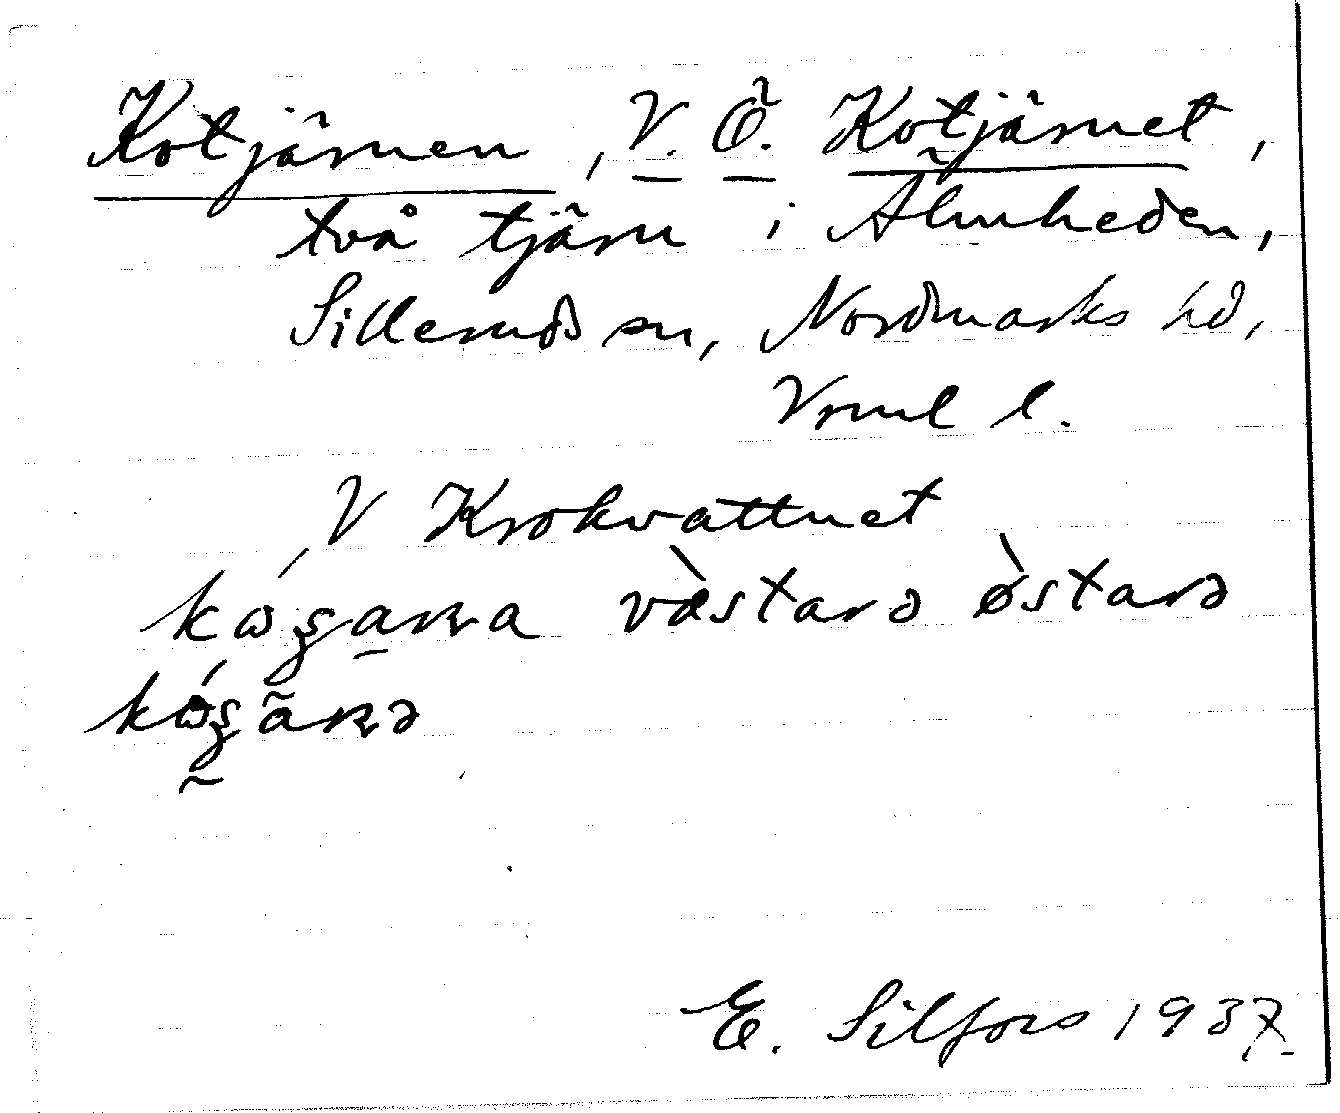 Kotjärnen, V. Ö. Kotjärnet,
två tjärn i Älmheden,
Sillerud sn, Nordmarks hd,
Vrml l.
V Krokvattnet
västarə östarə
E. Silfors 1937